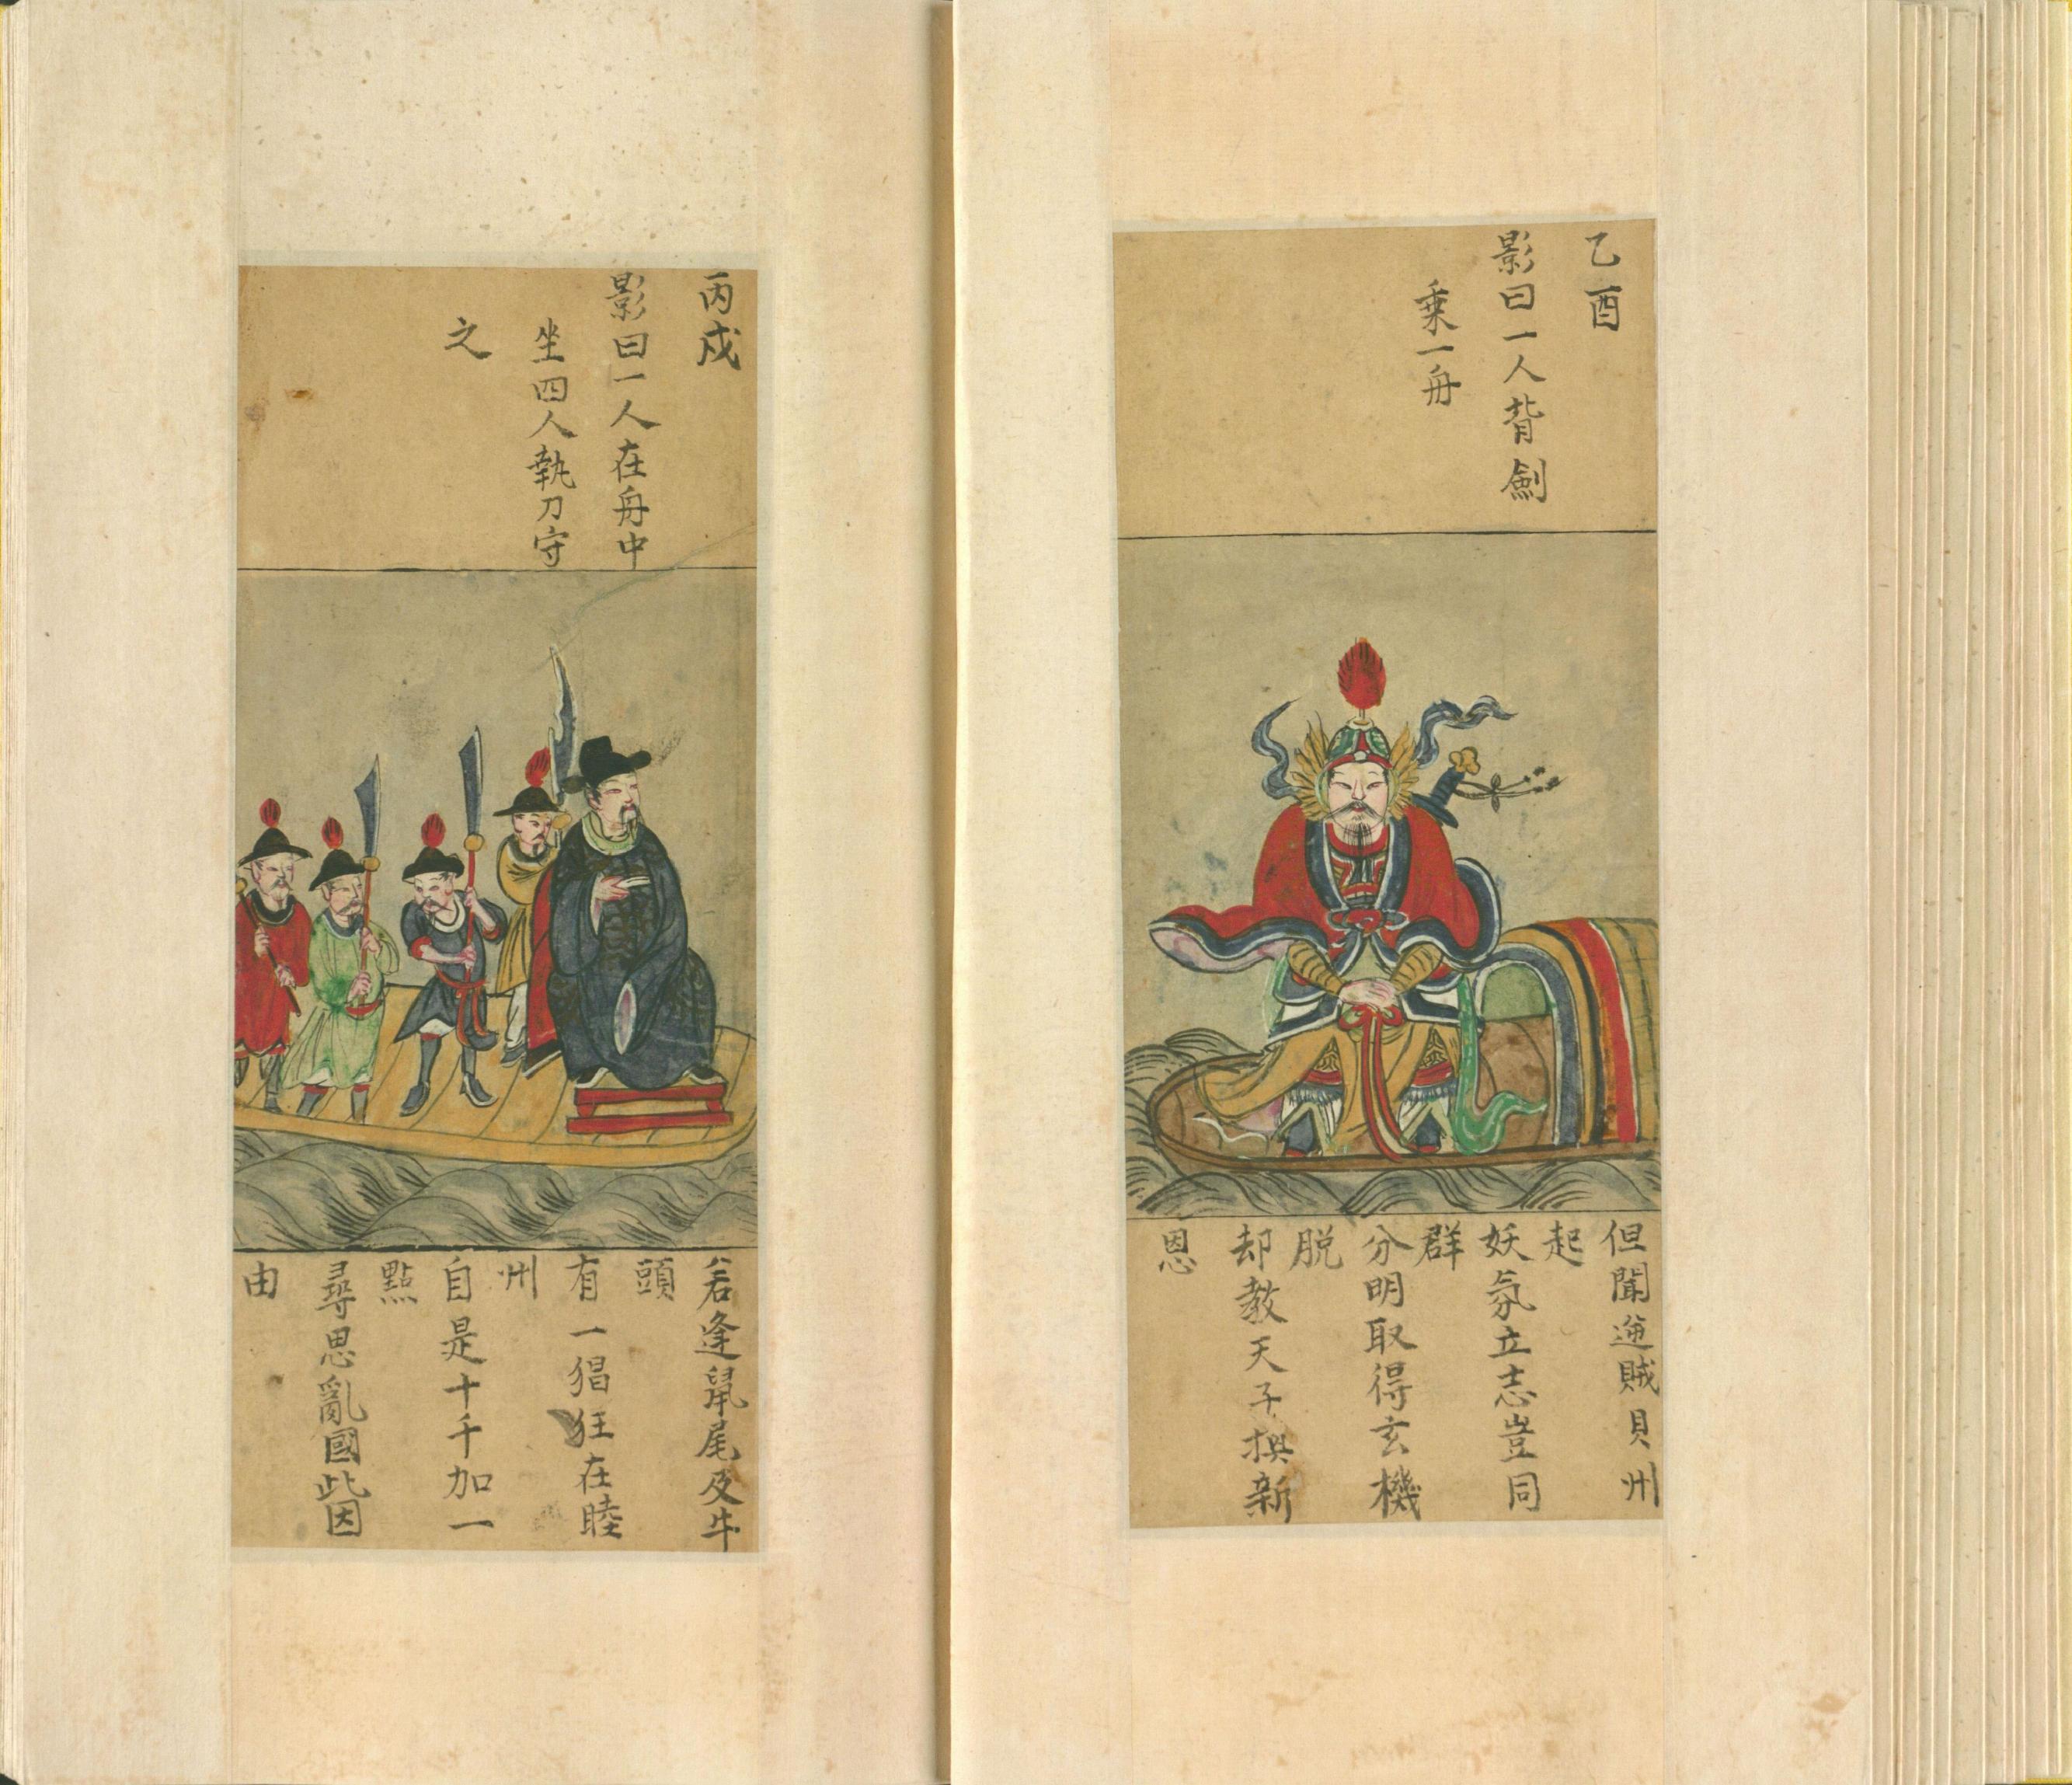 乙酉
影曰一人背劍
乗一舟
但聞逆賊貝州
起
妖氛立志豈同
群
分明取得玄機
脱
却教天子撰新
恩
丙戍
影曰一人在舟中
坐四人執刀守
之
若逢鼠尾及牛
頭
有一猖狂在睦
州
自是十千加一
點
尋思亂國此因
由